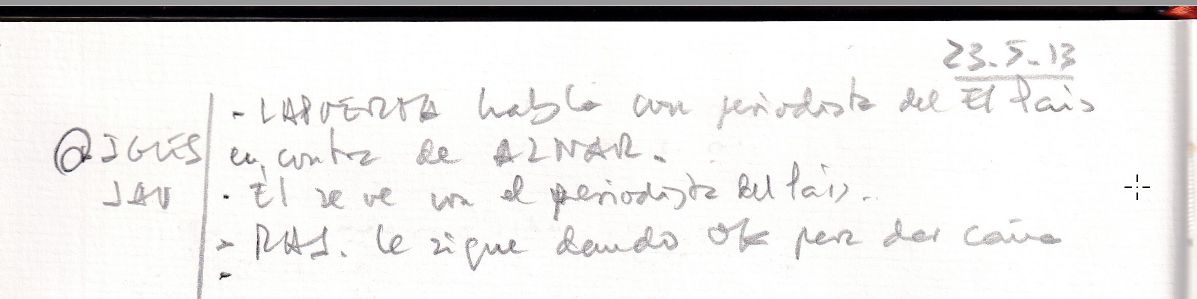 23.5.13
- LAPUERTA habla con periodista del El País
IGLES en contra de AZNAR.
JAV · El se ve con el periodista del País.
> RAJ. le sigue dando OK para dar caña